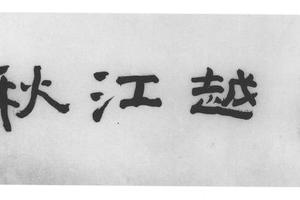 越江秋